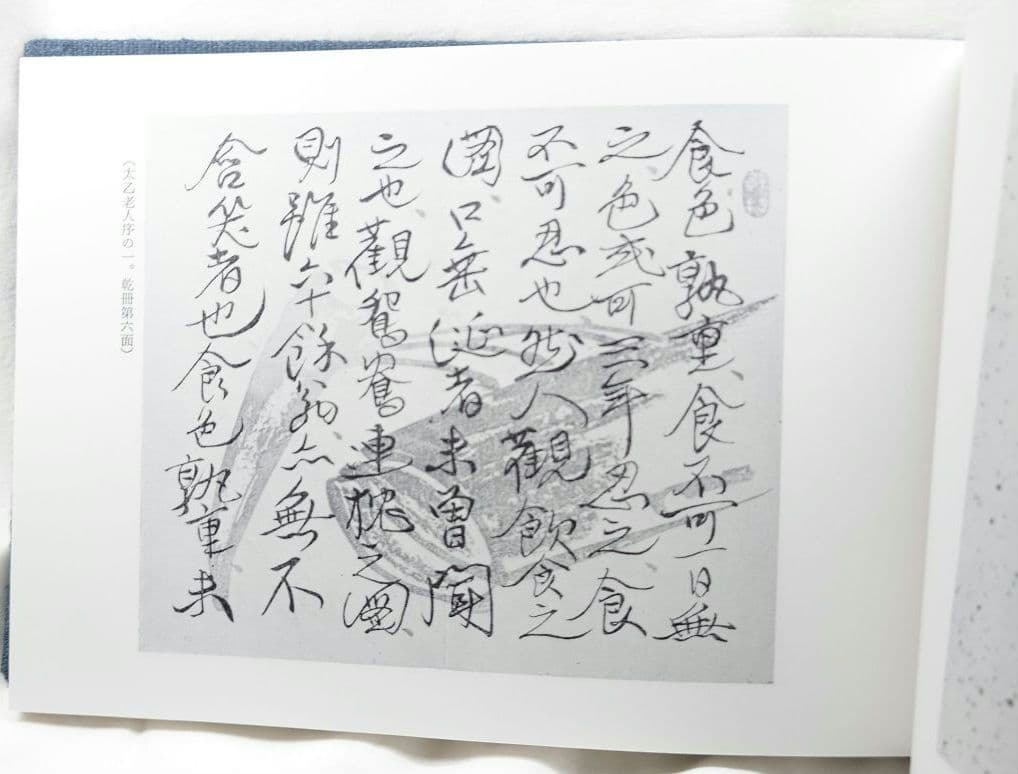 食色孰重、食不可一日無
之、色或可三年忍之、食
不可忍也、然人觀飲食之
圖、口垂涎者未曾聞
之也、觀鴛鴦連枕之圖、
則雖六十餘翁、亦無不
含笑者也食色孰重未
（太乙老人序の一。乾冊第六面）